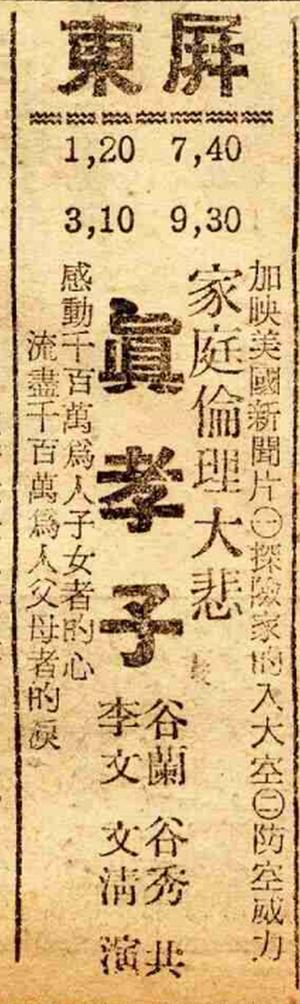 屏東
1,20 7,40
3,10 9,30
加映美國新聞片㊀探險家的入大空㊁防空威力
家庭倫理大悲
眞孝子
谷蘭 谷秀 共
李文 文清 演
感動千百萬爲人子女者的心
流盡千百萬爲人父母者的淚